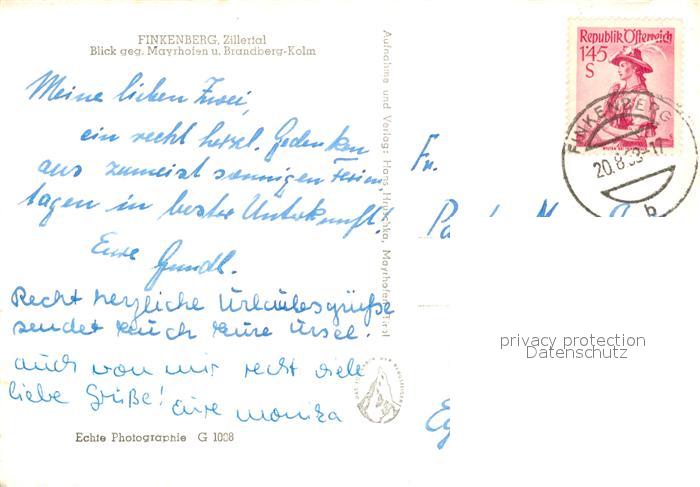 FINKENBERG, Zillertal
Blick geg. Mayrhofen u. Brandberg-Kolm
Meine lieben Zwei,
ein recht herzl. Gedenken
aus zumeist sonnigen Ferien-
tagen in bester Unterkunft!
Eure Gundl.
Recht herzliche Urlaubsgrüße
sendet Euch Eure Ursel.
auch von mir recht viele
liebe Grüße! Eure Monika
Echte Photographie G 1008
Aufnahme und Verlag: Hans Hruschka, Mayrhofen, Tirol
Republik Österreich
1'45
S
FINKENBERG
20.8.
b
Fr.
privacy protection
Datenschutz